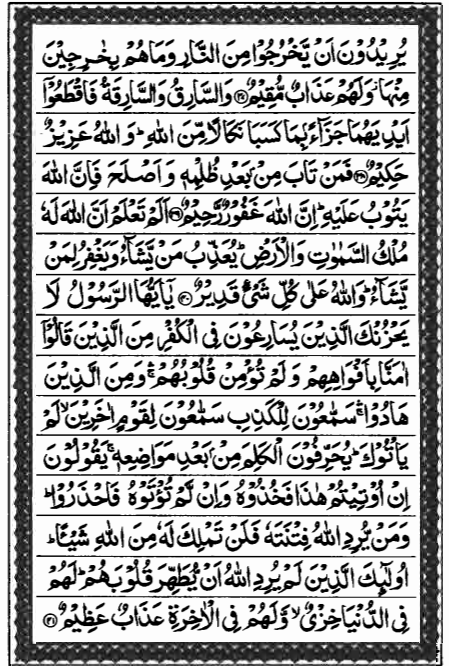 يُرِيْدُوْنَ اَنْ يَّخْرُجُوْا مِنَ النَّارِ وَمَا هُمْ بِخٰرِجِيْنَ
مِنْهَا ۚ وَلَهُمْ عَذَابٌ مُّقِيْمٌ ﴿٣٧﴾ وَالسَّارِقُ وَالسَّارِقَةُ فَاقْطَعُوْۤا
اَيْدِيَهُمَا جَزَآءًۢ بِمَا كَسَبَا نَكَالًا مِّنَ اللّٰهِ ؕ وَاللّٰهُ عَزِيْزٌ
حَكِيْمٌ ﴿٣٨﴾ فَمَنْ تَابَ مِنْۢ بَعْدِ ظُلْمِهٖ وَاَصْلَحَ فَاِنَّ اللّٰهَ
يَتُوْبُ عَلَيْهِ ؕ اِنَّ اللّٰهَ غَفُوْرٌ رَّحِيْمٌ ﴿٣٩﴾ اَلَمْ تَعْلَمْ اَنَّ اللّٰهَ لَهٗ
مُلْكُ السَّمٰوٰتِ وَالْاَرْضِ ؕ يُعَذِّبُ مَنْ يَّشَآءُ وَيَغْفِرُ لِمَنْ
يَّشَآءُ ؕ وَاللّٰهُ عَلٰى كُلِّ شَىْءٍ قَدِيْرٌ ﴿٤٠﴾ يٰۤاَيُّهَا الرَّسُوْلُ لَا
يَحْزُنْكَ الَّذِيْنَ يُسَارِعُوْنَ فِى الْكُفْرِ مِنَ الَّذِيْنَ قَالُوْۤا
اٰمَنَّا بِاَفْوَاهِهِمْ وَلَمْ تُؤْمِنْ قُلُوْبُهُمْ ۚ وَمِنَ الَّذِيْنَ
هَادُوْا ۚ سَمّٰعُوْنَ لِلْكَذِبِ سَمّٰعُوْنَ لِقَوْمٍ اٰخَرِيْنَ ۙ لَمْ
يَاْتُوْكَ ؕ يُحَرِّفُوْنَ الْكَلِمَ مِنْۢ بَعْدِ مَوَاضِعِهٖ ۚ يَقُوْلُوْنَ
اِنْ اُوْتِيْتُمْ هٰذَا فَخُذُوْهُ وَاِنْ لَّمْ تُؤْتَوْهُ فَاحْذَرُوْا ؕ
وَمَنْ يُّرِدِ اللّٰهُ فِتْنَتَهٗ فَلَنْ تَمْلِكَ لَهٗ مِنَ اللّٰهِ شَيْـًٔا ؕ
اُولٰٓئِكَ الَّذِيْنَ لَمْ يُرِدِ اللّٰهُ اَنْ يُّطَهِّرَ قُلُوْبَهُمْ ؕ لَهُمْ
فِى الدُّنْيَا خِزْىٌ ۖ وَّلَهُمْ فِى الْاٰخِرَةِ عَذَابٌ عَظِيْمٌ ﴿٤١﴾